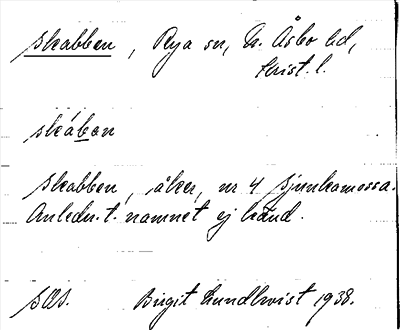 skabben, Rya sn, N. Åsbo hd,
Krist. l.
skában
skabben, åker, nr 4 Sjunkamossa.
Anledn. t. namnet ej känd.
SOS. Birgit Lundkvist 1938.